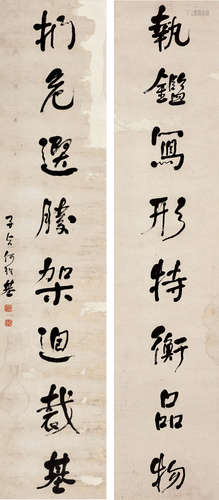 執鑑寫形持衡品物
捫危選勝架迥裁基
子貞何紹基